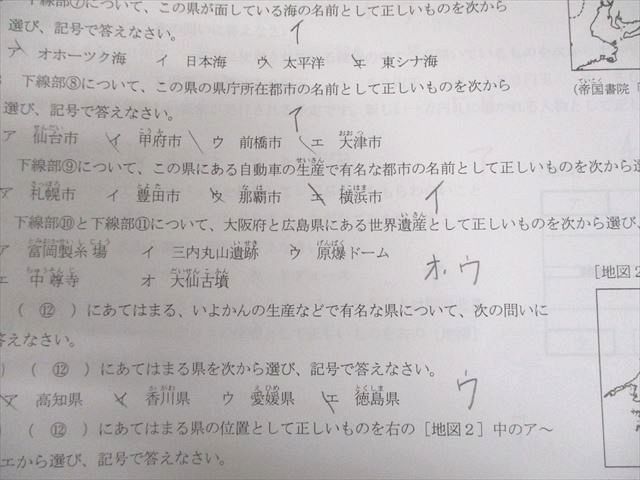 下線部⑦について、この県が面している海の名前として正しいものを次から
選び、記号で答えなさい。
イ
ア オホーツク海 イ 日本海 ウ 太平洋 エ 東シナ海
(帝国書院「
下線部⑧について、この県の県庁所在都市の名前として正しいものを次から
選び、記号で答えなさい。
イ
ア 仙台市 イ 甲府市 ウ 前橋市 エ 大津市
下線部⑨について、この県にある自動車の生産で有名な都市の名前として正しいものを次から選
ア 札幌市 イ 豊田市 ウ 那覇市 エ 横浜市 イ
下線部⑩と下線部⑪について、大阪府と広島県にある世界遺産として正しいものを次から選び、
ア 富岡製糸場 イ 三内丸山遺跡 ウ 原爆ドーム
エ 中尊寺 オ 大仙古墳
オ、ウ
[地図2
( ⑫ )にあてはまる、いよかんの生産などで有名な県について、次の問いに
答えなさい。
( ⑫ )にあてはまる県を次から選び、記号で答えなさい。
ア 高知県 イ 香川県 ウ 愛媛県 エ 徳島県 ウ
( ⑫ )にあてはまる県の位置として正しいものを右の[地図2]中のア～
エから選び、記号で答えなさい。